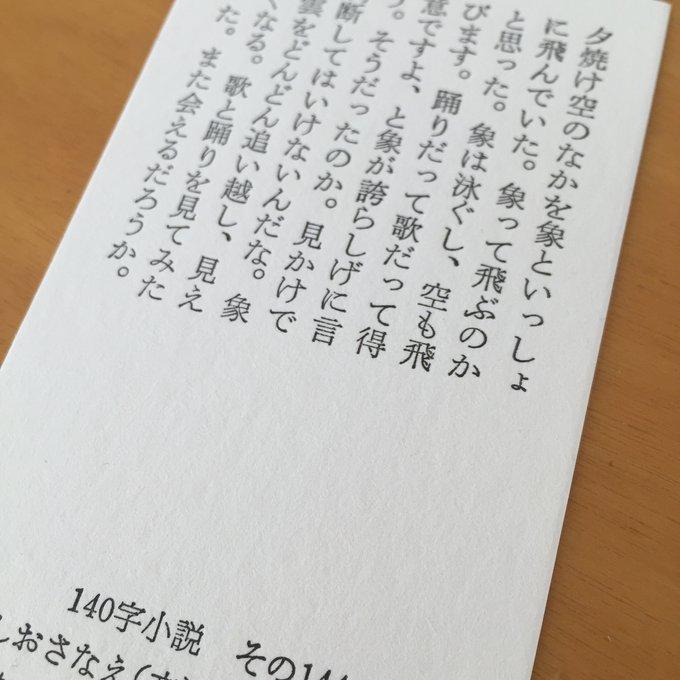 夕焼け空のなかを象といっしょ
に飛んでいた。象って飛ぶのか
と思った。象は泳ぐし、空も飛
びます。踊りだって歌だって得
意ですよ、と象が誇らしげに言
う。そうだったのか。見かけで
断してはいけないんだな。象
雲をどんどん追い越し、見え
くなる。歌と踊りを見てみた
た。また会えるだろうか。
140字小説 その14
しおさなえ(